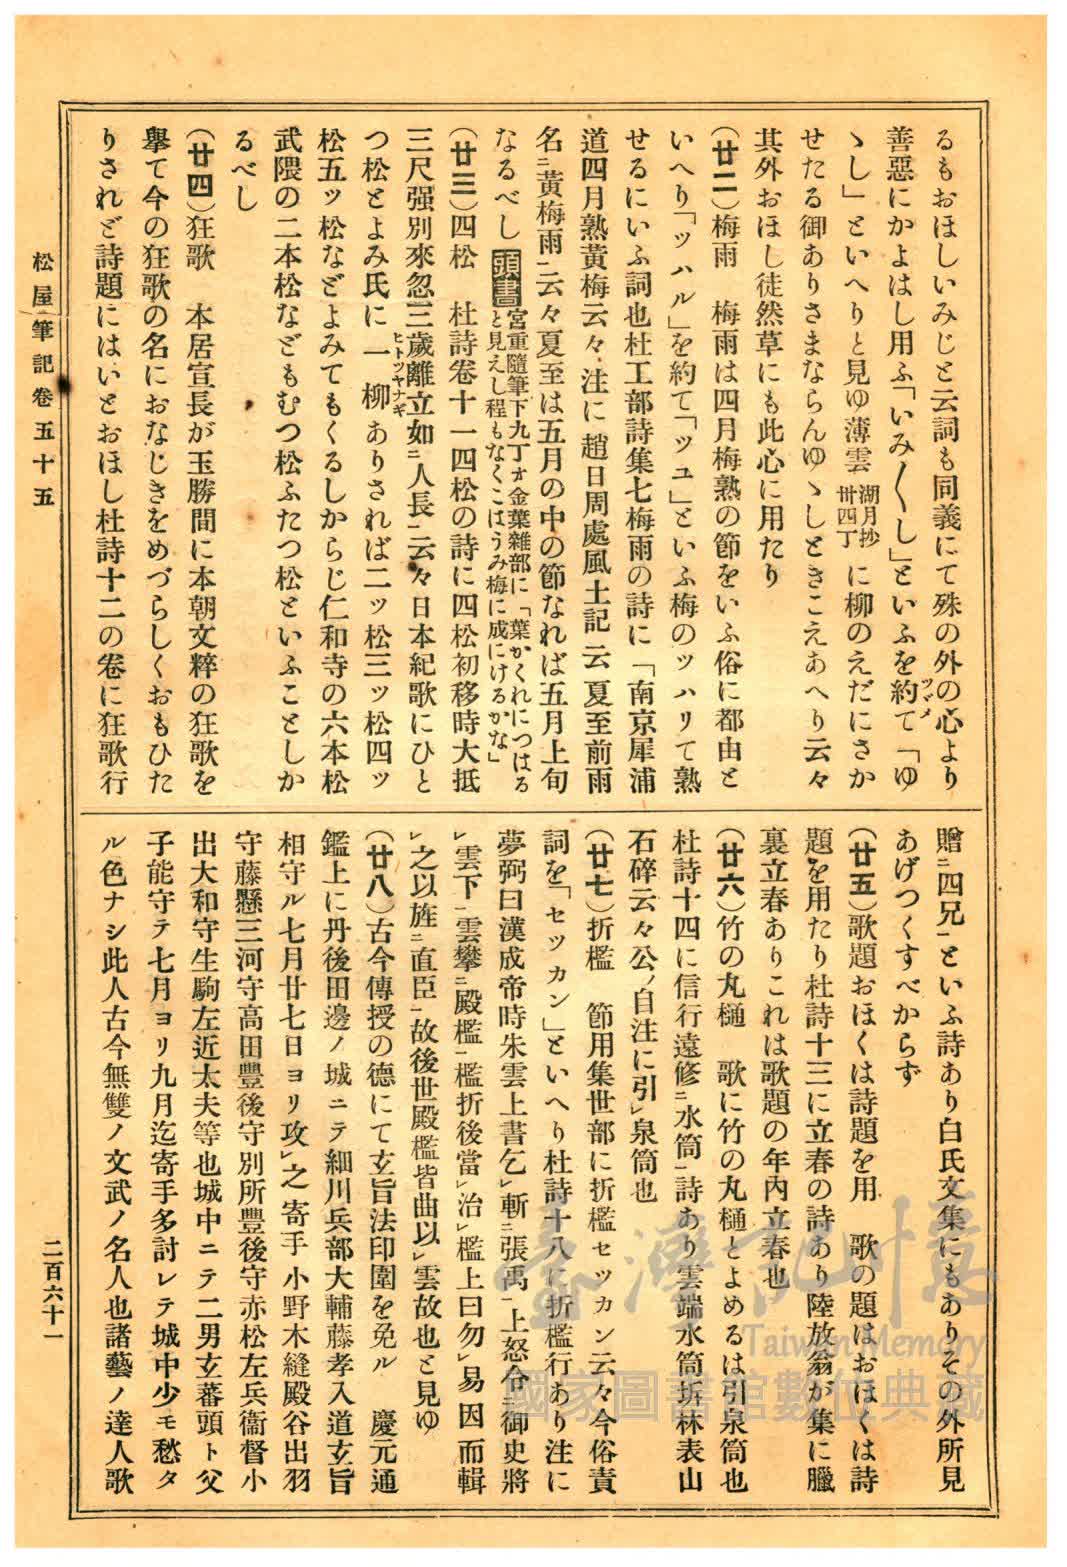 るもおほしいみじと云詞も同義にて殊の外の心より
善惡にかよはし用ふ「いみ〳〵し」といふを約ツヾメて「ゆ
ゝし」といへりと見ゆ薄雲湖月抄卅四丁に柳のえだにさか
せたる御ありさまならんゆゝしときこえあへり云々
其外おほし徒然草にも此心に用たり
（廿二）梅雨　梅雨は四月梅熟の節をいふ俗に都由と
いへり「ツハル」を約て「ツユ」といふ梅のツハリて熟
せるにいふ詞也杜工部詩集七梅雨の詩に「南京犀浦
道四月熟黃梅云々注に趙日周處風土記云夏至前雨
名ニ黃梅雨一云々夏至は五月の中の節なれば五月上旬
なるべし頭書宮重隨筆下九丁ォ金葉雜部に「葉かくれにつはる
と見えし程もなくこはうみ梅に成にけるかな」
（廿三）四松　杜詩卷十一四松の詩に四松初移時大抵
三尺强別來忽三歲離立如ニ人長一云々日本紀歌にひと
つ松とよみ氏に一柳ヒトツヤナギありされば二ッ松三ッ松四ッ
松五ッ松などよみてもくるしからじ仁和寺の六本松
武隈の二本松などもむつ松ふたつ松といふことしか
るべし
（廿四）狂歌　本居宣長が玉勝間に本朝文粹の狂歌を
擧て今の狂歌の名におなじきをめづらしくおもひた
りされど詩題にはいとおほし杜詩十二の卷に狂歌行
贈ニ四兄一といふ詩あり白氏文集にもありその外所見
あげつくすべからず
（廿五）歌題おほくは詩題を用　歌の題はおほくは詩
題を用たり杜詩十三に立春の詩あり陸放翁が集に臘
裏立春ありこれは歌題の年內立春也
（廿六）竹の丸樋　歌に竹の丸樋とよめるは引泉筒也
杜詩十四に信行遠修ニ水筒一詩あり雲端水筒坼林表山
石碎云々公ノ自注に引レ泉筒也
（廿七）折檻　節用集世部に折檻セッカン云々今俗責
詞を「セッカン」といへり杜詩十八に折檻行あり注に
夢弼曰漢成帝時朱雲上書乞レ斬ニ張禹一上怒令ニ御史將
レ雲下一雲攀ニ殿檻一檻折後當レ治レ檻上曰勿レ易因而輯
レ之以旌ニ直臣一故後世殿檻皆曲以レ雲故也と見ゆ
（廿八）古今傳授の德にて玄旨法印圍を免ル　慶元通
鑑上に丹後田邊ノ城ニテ細川兵部大輔藤孝入道玄旨
相守ル七月廿七日ヨリ攻レ之寄手小野木縫殿谷出羽
守藤懸三河守高田豐後守別所豐後守赤松左兵衞督小
出大和守生駒左近太夫等也城中ニテ二男玄蕃頭ト父
子能守テ七月ヨリ九月迄寄手多討レテ城中少モ愁タ
ル色ナシ此人古今無雙ノ文武ノ名人也諸藝ノ達人歌
松屋筆記卷五十五
二百六十一
臺灣記憶
Taiwan Memory
國家圖書館數位典藏